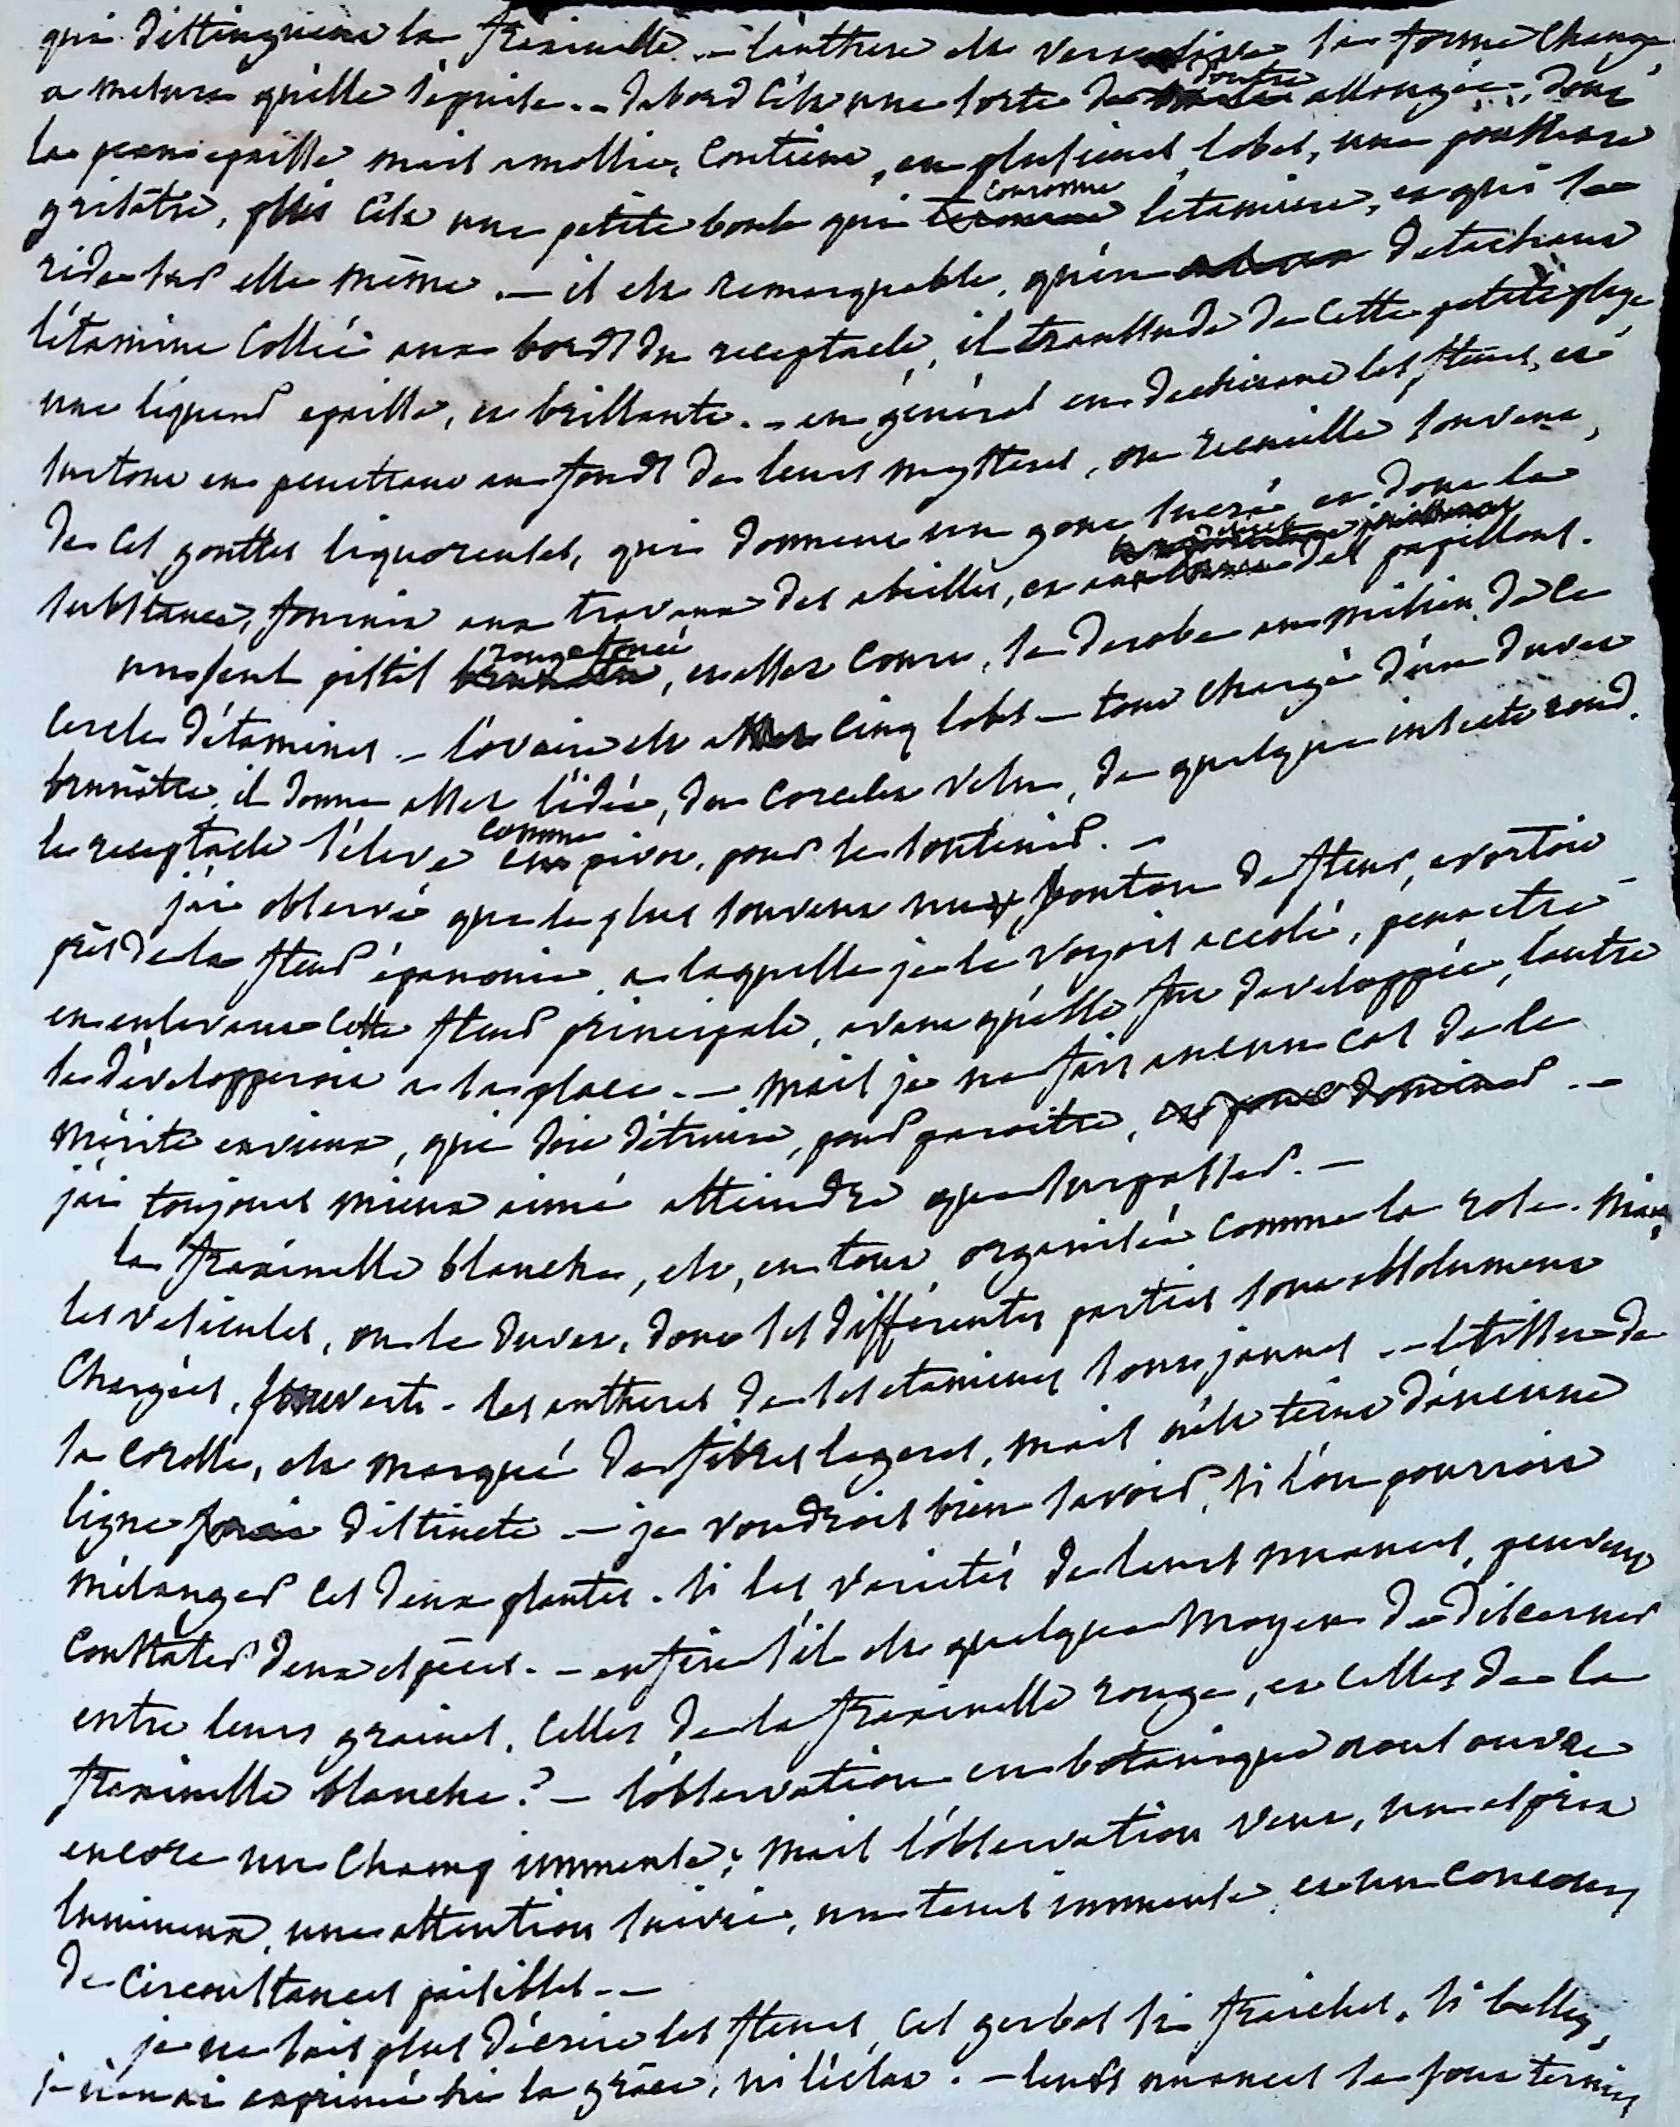 qui distinguent la fraxinelle. – l'anthere est versatile sa forme change,
a mesure qu'elle s'epuise. – d'abord c'est une sorte de outre allongée, dont
la peau epaisse mais amollie, contient, en plusieurs lobes, une poussiere
grisâtre, puis c'est une petite boule qui couronne l'etamine, et qui se
ride sur elle même. – il est remarquable, qu'en detachant
l'étamine collée aux bords du receptacle, il transsude de cette petite plaie
une liqueur epaisse, et brillante. – en général en dechirant les fleurs, et
surtout en penetrant au fonds de leurs mysteres, on recueille souvent,
de ces gouttes liquoreuses, qui donnent un gout sucré et dont la
substance, fournit aux travaux des abeilles, et aux des papillons.
un seul pistil rouge foncé, et assez court, se derobe au milieu de ce
cercle d'étamines – l'ovaire est a cinq lobes – tout chargé d'un duvet
brunâtre, il donne assez l'idée, du corcelet velu, de quelque insecte rond.
le receptacle s'éleve comme pivot, pour le soutenir. –
j'ai observé que le plus souvent un bouton de fleur, avortoit
près de la fleur épanouie, a laquelle je le voyois accolé, peut etre
en enlevant cette fleur principale, avant qu'elle fut developpée, l'autre
se développeroit a sa place. – mais je ne fais aucun cas de ce
mérite envieux, qui doit détruire, pour paroitre, et pour dominer. –
j'ai toujours mieux aimé atteindre que surpasser. –
la fraxinelle blanche, est, en tout organisée comme la rose. mais
les vesicules, ou le duvet, dont ses différentes parties sont absolument
chargées, sont verts – les antheres de ses etamines sont jaunes. – le tissu de
sa corolle, est marqué de fibres legeres, mais n'est teint d'aucune
ligne distincte – je voudrois bien savoir, si l'on pourroit
mélanger ces deux plantes. si les varietés de leurs nuances, peuvent
constater deux especes. – enfin s'il est quelque moyen de discerner
entre leurs graines, celles de la fraxinelle rouge, et celles de la
fraxinelle blanche? – l'observation en botanique nous ouvre
encore un champ immense; mais l'observation veut, un esprit
lumineux, une attention suivie, un tems immense, et un concours
de circonstances paisibles. –
je ne sais plus décrire les fleurs, ces gerbes si fraiches, si belles,
je n'en ai exprimé ni la grâce, ni l'éclat. – leurs nuances se sont ternies